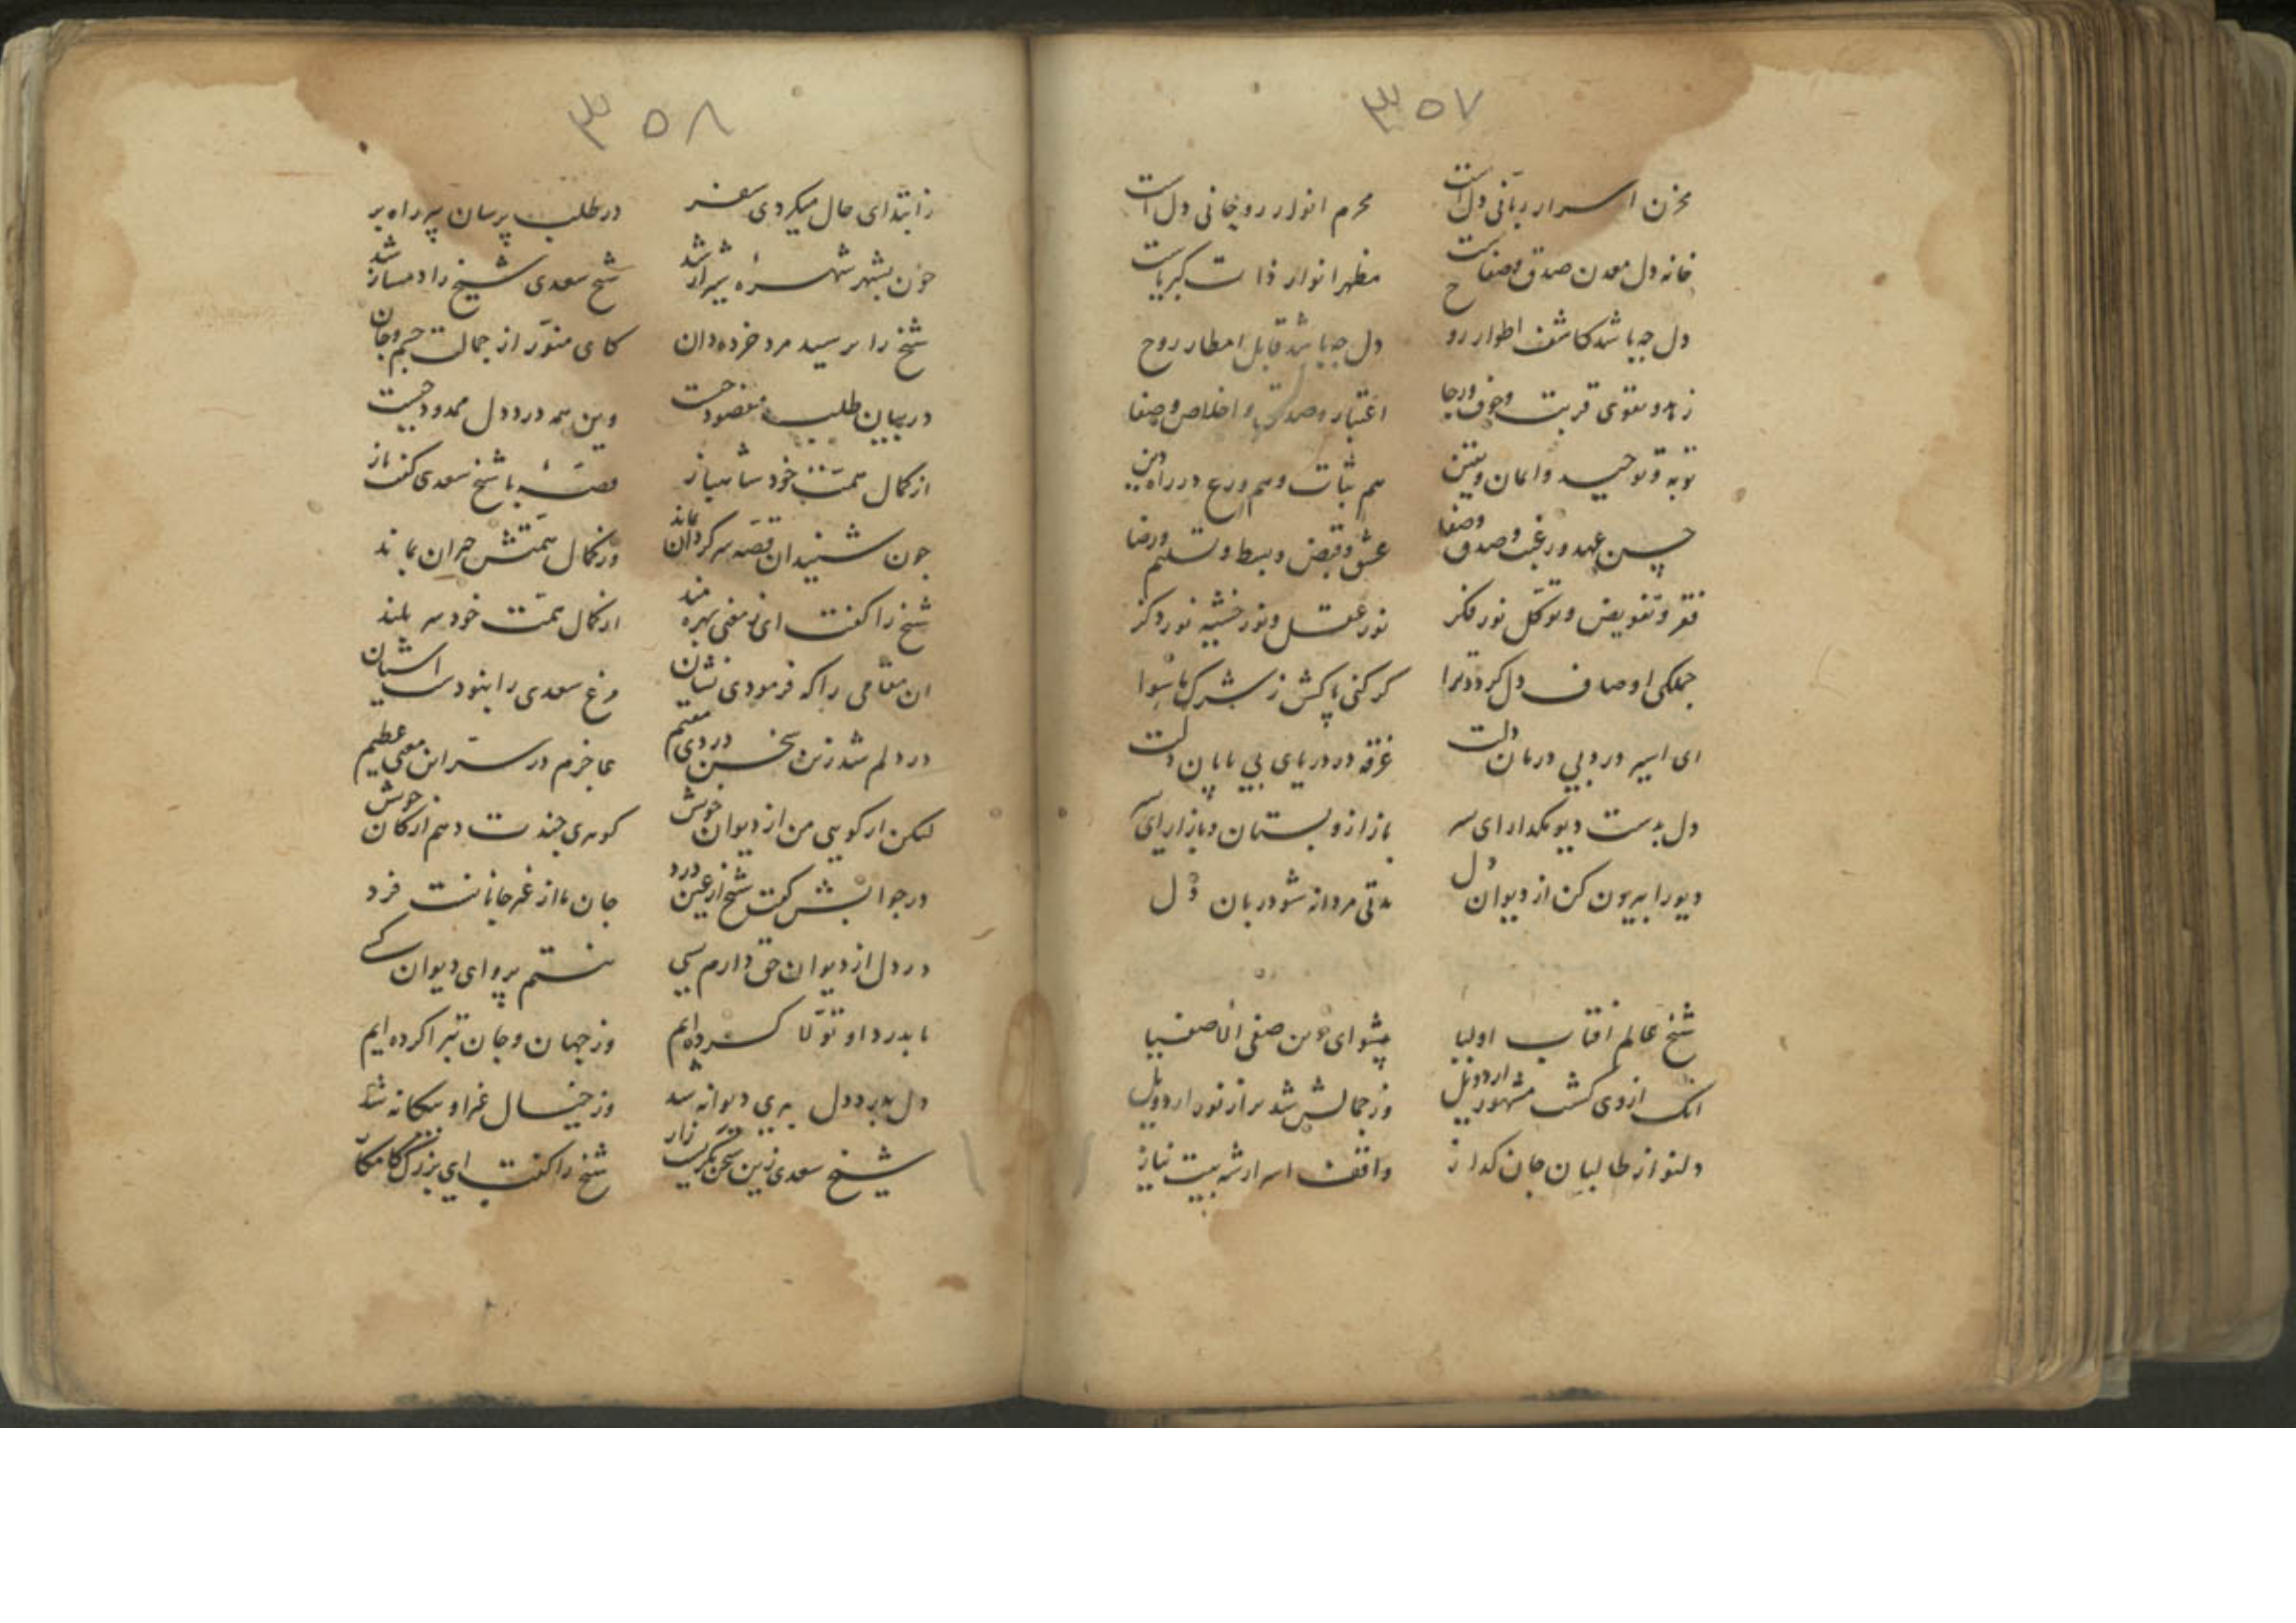 ۳۵۷
مخزن اسرار ربانی دل است محرم انوار روحانی دل است
خانه دل معدن صدق و صفاست مظهر انوار ذات کبریاست
دل چه باشد کاشف اطوار روح دل چه باشد قابل امطار روح
زهد و تقوی قربت و خوف و رجا اعتبار و صدق و اخلاص و صفا
توبه و توحید و ایمان و یقین هم ثبات و هم ورع در راه دین
حسن عهد و رغبت و صدق و صفا عشق و قبض و بسط و تسلیم و رضا
فقر و تفویض و توکل نور فکر نور عقل و نور خشیه نور ذکر
جملکی اوصاف دل کردد ترا کر کنی پاکش ز شرک ماسوا
ای اسیر درد بی درمان دلت غرقه در دریای بی پایان دلت
دل بدست دیو مکدار ای سر باز ازو بستان و باز ار ای سر
دیو را بیرون کن از دیوان دل مدتی مردانه شو دربان دل
شیخ عالم آفتاب اولیا پیشوای دین صفی الاصفیا
آنک ازوی کشت مشهور اردویل وز جمالش شد پر از نور اردویل
دلنواز طالبان جان کداز واقف اسرار شه بیت نیاز
۳۵۸
ز ابتدای حال میکردی سفر در طلب پرسان پیر راه بر
چون بشهر شهره شیراز شد شیخ سعدی شیخ را دمساز شد
شیخ را پرسید مرد خرده دان کای منور از جمالت جسم و جان
در بیان طلب مقصود چیست وین همه درد دل ممدود چیست
از کمال همت خود شاهباز قصه با شیخ سعدی کفت باز
چون شنید آن قصه سرکردان بماند وز کمال همتش حیران بماند
شیخ را کفت ای ز معنی بهره مند از کمال همت خود سر بلند
آن مقامی را که فرمودی نشان مرغ سعدی را نبودست آشیان
در دلم شد زین سخن دردی مقیم عاجزم در سر این معنی عظیم
لیکن ار کویی من از دیوان خویش کوهری چندت دهم از کان خویش
در جوابش کفت شیخ از عین درد جان ما از غیر جانانست فرد
در دل از دیوان حق دارم بسی نیستم پروای دیوان کسی
ما بدرد او تولا کرده ایم وز جهان و جان تبرا کرده ایم
دل بدرد دل بری دیوانه شد وز خیال غیر او بیکانه شد
شیخ سعدی زین سخن بکریست زار شیخ را کفت ای بزرک کامکار